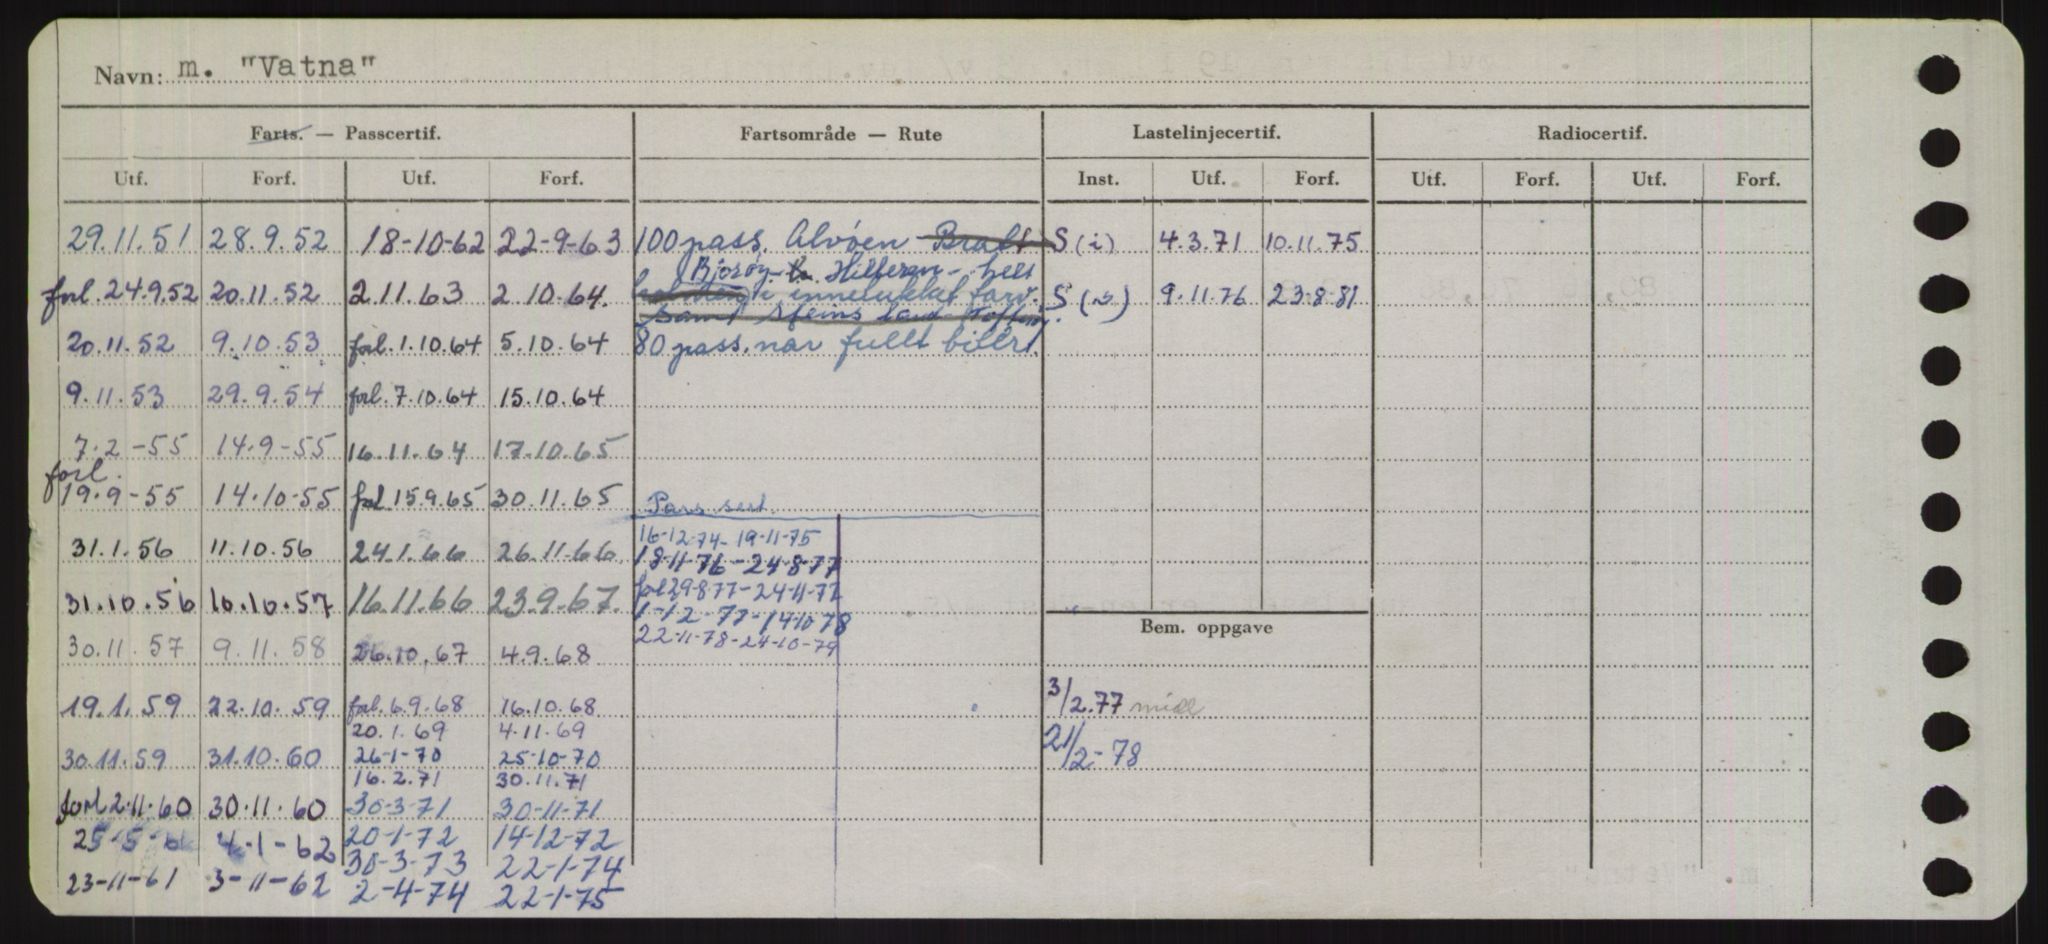 Navn: m. "Vatna"
Farts. — Passcertif. Fartsområde — Rute Lastelinjecertif. Radiocertif.
Utf. Forf. Utf. Forf. Inst. Utf. Forf. Utf. Forf. Utf. Forf.
29.11.51 28.9.52 18-10-62 22-9-63 100 pass. Alvøen S (i) 4.3.71 10.11.75
Bjorøy Hilleren - helt
forl. 24.9.52 20.11.52 2.11.63 2.10.64. innelukket farv. S (v) 9.11.76 23-8-81
samt
20.11.52 9.10.53 forl. 1.10.64 5.10.64 80 pass. når fullt billr.
9.11.53 29.9.54 forl. 7.10.64 15.10.64
7.2-55 14.9-55 16.11.64 17.10.65
forl.
19.9-55 14.10-55 forl 15.9.65 30.11.65 Pass sert.
16-12-74 - 19-11-75
31.1.56 11.10.56 24.1.66 26.11.66 18-11-76 - 24-8-77
forl 29-8-77 - 24-11-77
31.10.56 16.10.57 16.11.66 23.9.67. 1-12-77 - 14-10-78
Bem. oppgave
22-11-78 - 24-10-79
30.11.57 9.11.58 26.10.67 4.9.68
19.1.59 22.10.59 forl. 6.9.68 16.10.68 3/2.77
20.1.69 4.11.69
30.11.59 31.10.60 26-1-70 25-10-70 21/2-78
16.2.71 30.11.71
forl 2.11.60 30.11.60 30-3-71 30-11-71
25-5-61 4-1-62 20-1-72 14-12-72
30-3-73 22-1-74
23-11-61 3-11-62 2-4-74 22-1-75